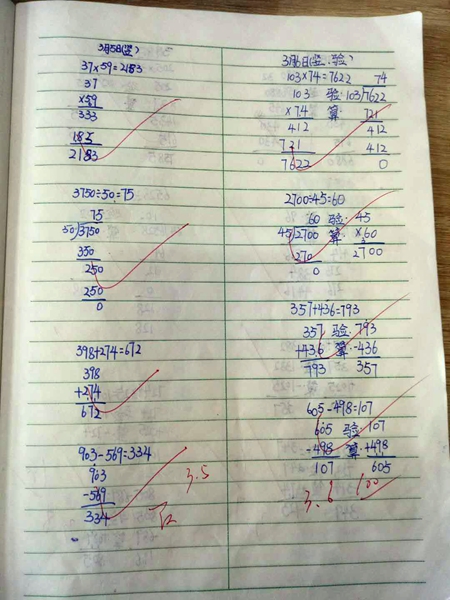 3月5日(竖)
37×59=2183
37
×59
333
185
2183
3750÷50=75
75
50)3750
350
250
250
0
398+274=672
398
+274
672
903-569=334
903
-569
334
3.5
3月6日(竖.验)
103×74=7622 74
103 验:103)7622
×74 算: 721
412 412
721 412
7622 0
2700÷45=60
60 验:45
45)2700 算:×60
270 2700
0
357+436=793
357 验:793
+436 算:-436
793 357
605-498=107
605 验 107
-498 算:+498
107 605
3.6 100